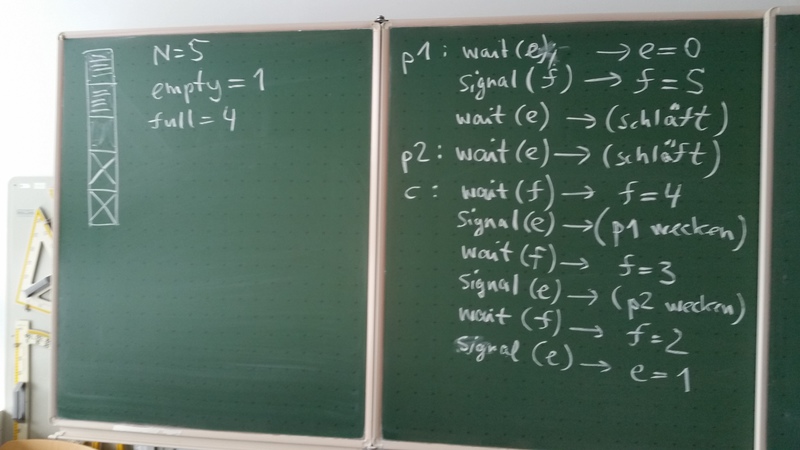 N=5
empty=1
full=4
p1: wait(e); → e=0
signal(f) → f=5
wait(e) → (schläft)
p2: wait(e) → (schläft)
c: wait(f) → f=4
signal(e) → (p1 wecken)
wait(f) → f=3
signal(e) → (p2 wecken)
wait(f) → f=2
signal(e) → e=1